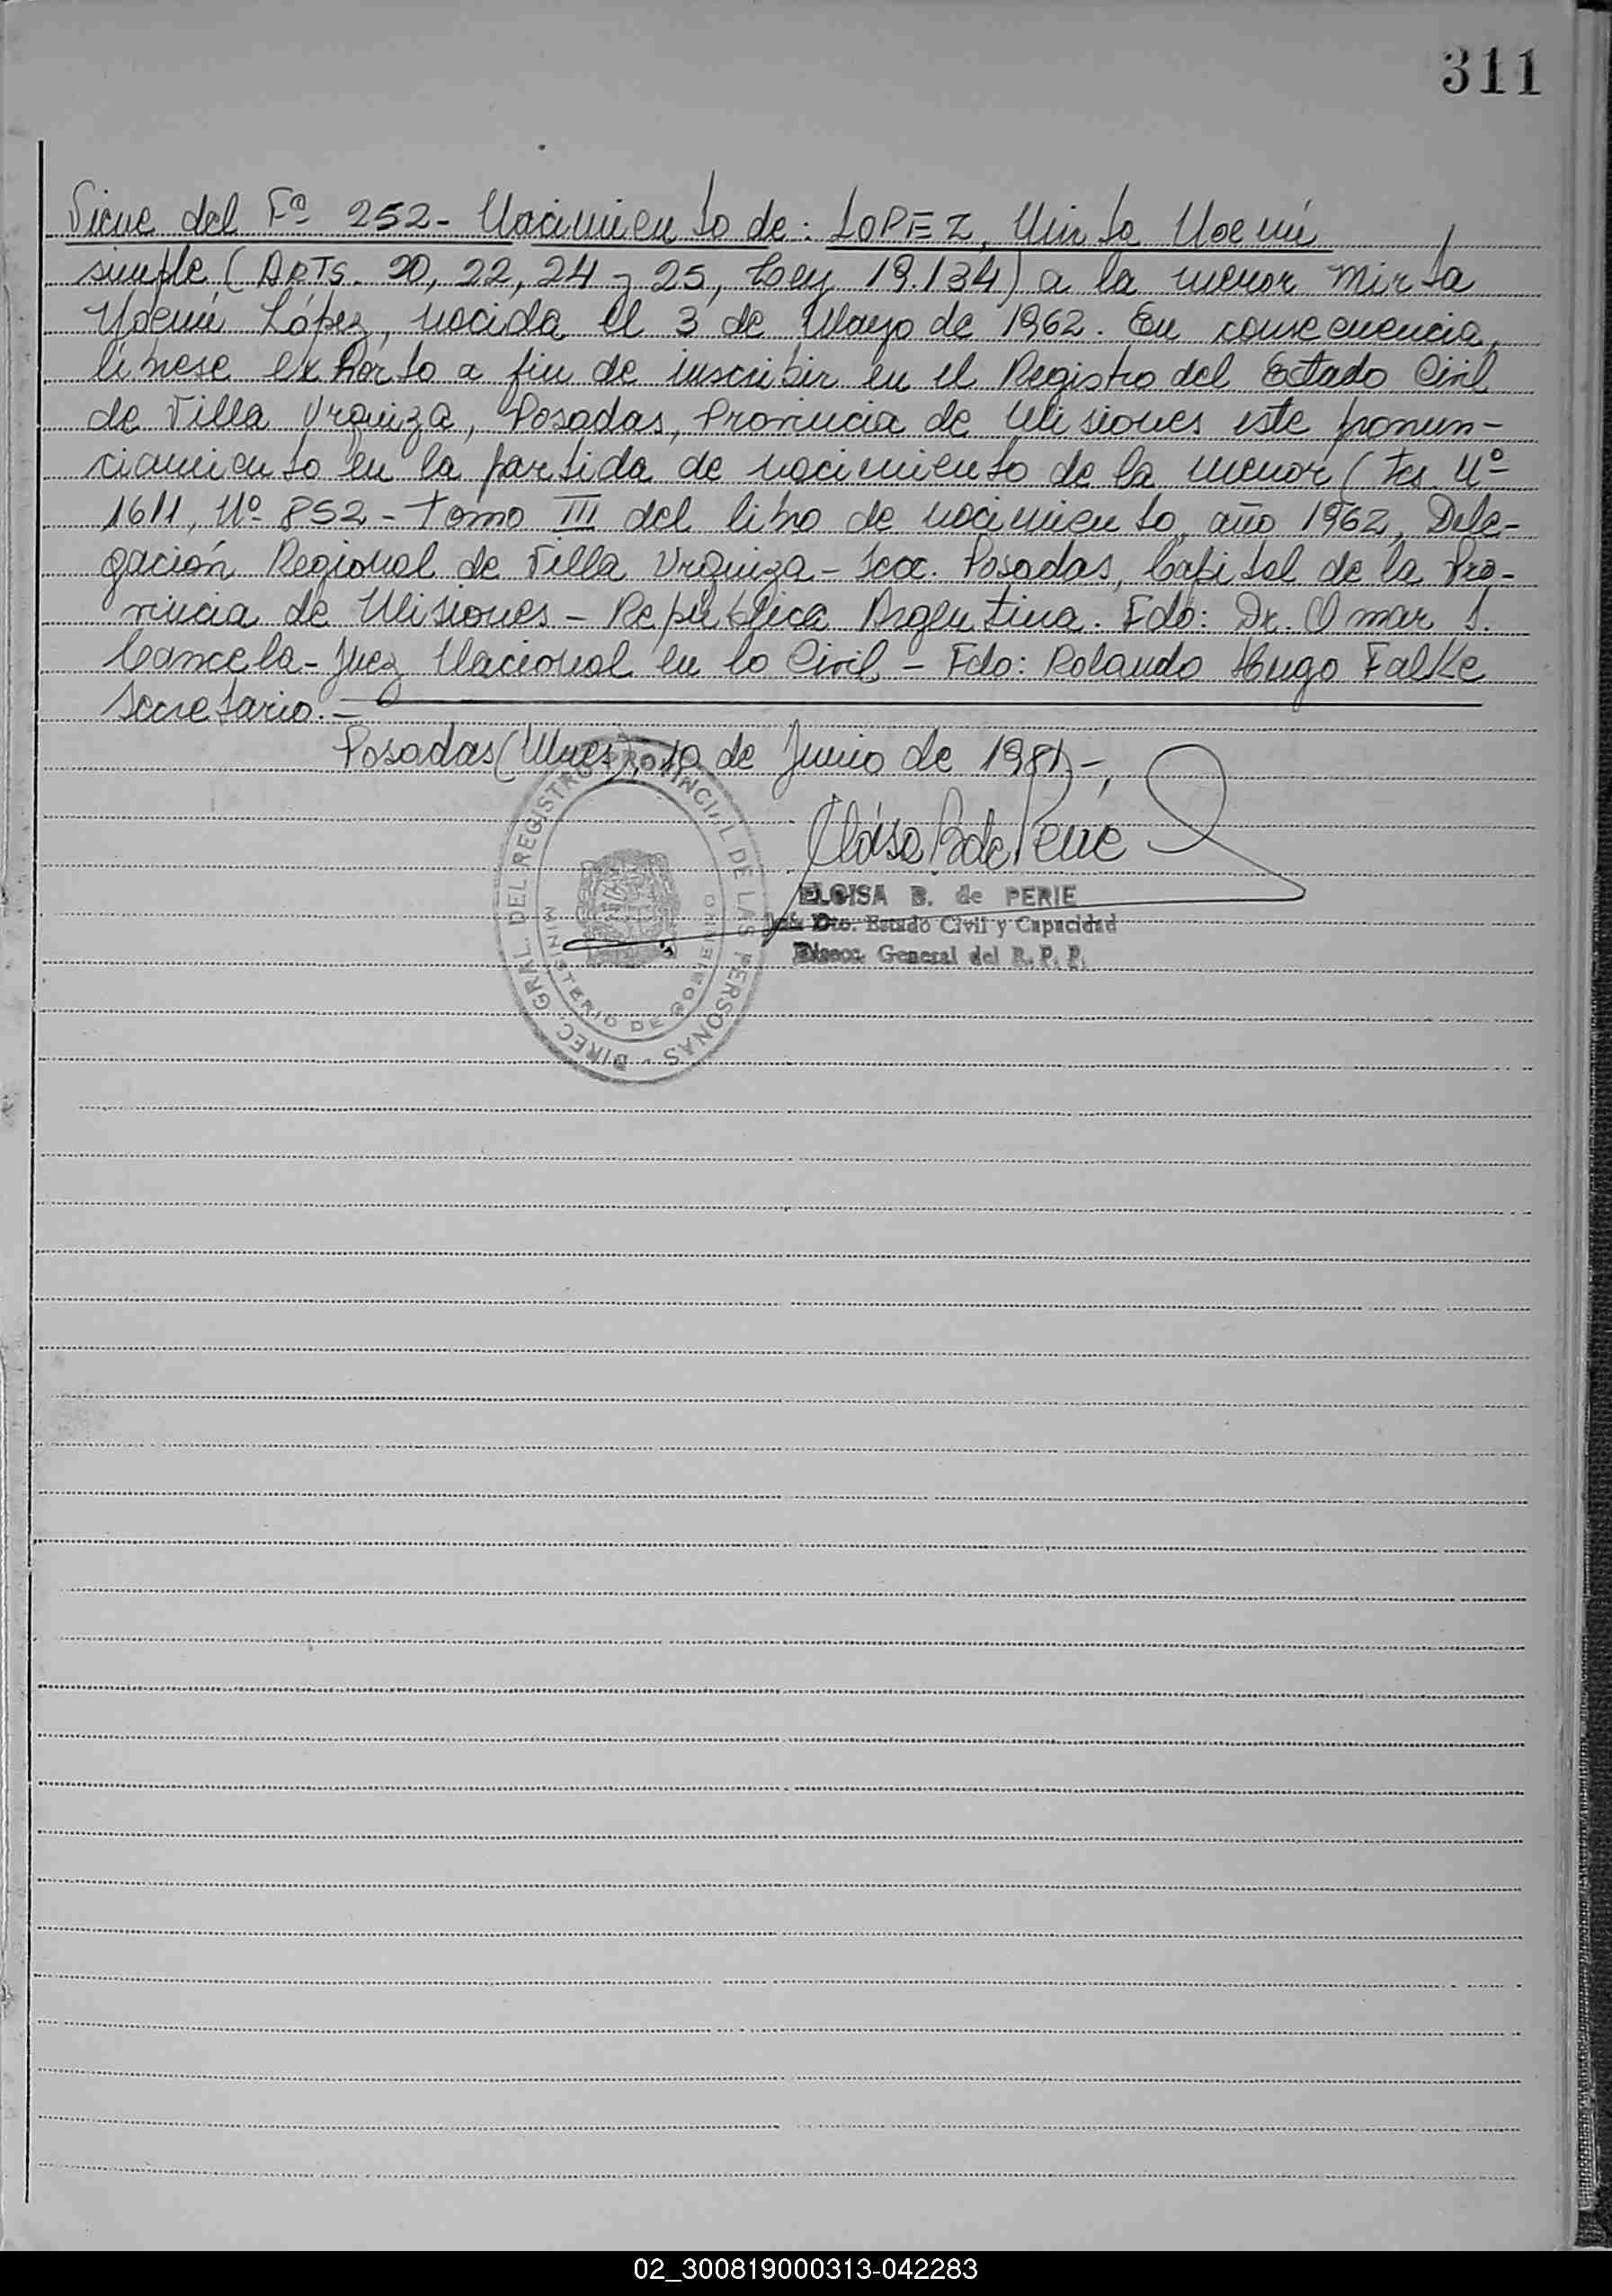 311
Viene del Fº 252- Nacimiento de: LOPEZ, Mirta Noemí
simple, (ARTS. 20, 22, 24 y 25, Ley 19.134) a la menor Mirta
Noemí López, nacida el 3 de Mayo de 1962. En consecuencia,
líbrese exhorto a fin de inscribir en el Registro del Estado Civil
de Villa Urquiza, Posadas, Provincia de Misiones este pronun-
ciamiento en la partida de nacimiento de la menor (Fs. Nº
1611, Nº 852 - Tomo III del libro de nacimiento, año 1962, Dele-
gación Regional de Villa Urquiza - Posadas, Capital de la Pro-
vincia de Misiones - República Argentina. Fdo: Dr. Omar J.
Cancela - Juez Nacional en lo Civil - Fdo: Rolando Hugo Falke
secretario.-
Posadas (Mnes), 10 de Junio de 1981-,
Eloisa B de Perié
ELOISA B. de PERIE
Jefe Dto. Estado Civil y Capacidad
Direcc. General del R. P. P.
DIREC. GRAL. DEL REGISTRO PROVINCIAL DE LAS PERSONAS -
MINISTERIO DE GOBIERNO
02_300819000313-042283